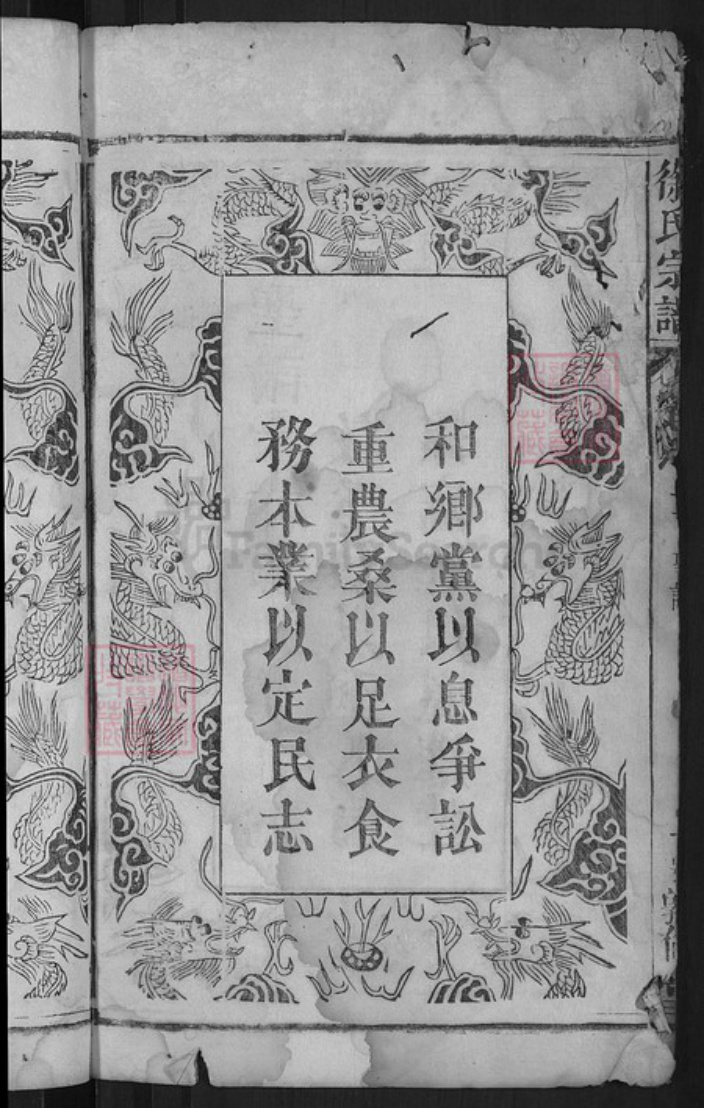 和鄉黨以息爭訟
重農桑以足衣食
務本業以定民志
徐氏宗譜
FamilySearch